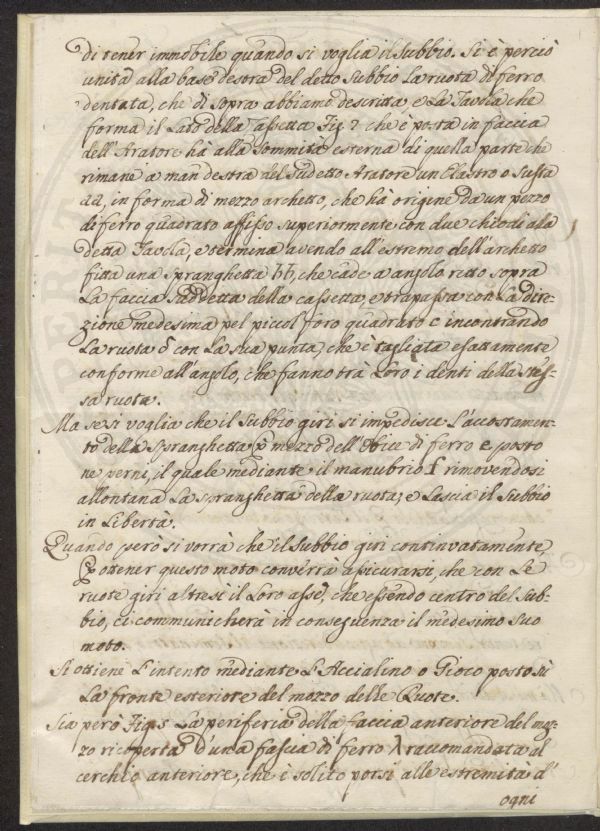 di tener immobile quando si voglia il Subbio. Si è perciò
unita alla base destra del detto Subbio La ruota di ferro
dentata, che di sopra abbiamo descritta e La Tavola che
forma il Lato della Cassetta Fig. 2 che è posta in faccia
dell'Aratore hà alla Sommità esterna di quella parte che
rimane a man destra del Sudetto Aratore un Elastro o Susta
aa, in forma di mezzo archetto, che hà origine da un pezzo
di ferro quadrato affisso superiormente con due chiodi ala
detta Tavola, e termina avendo all'estremo dell'archetto
fitta una Spranghetta bb, che cade a angolo ritto sopra
La faccia Suddetta della cassetta, e trapassa con La dire-
zione medesima pel piccol foro quadrato c incontrando
La ruota d con La sua punta, che è tagliata esattamente
conforme all'angolo, che fanno tra Loro i denti della stes-
sa ruota.
Ma se si voglia che il Subbio giri si impedisce L'accostamen-
to della Spranghetta p mezzo dell'Obice di ferro e posto
ne perni, il quale mediante il manubrio f rimovendosi
allontana La spranghetta della ruota, e Lascia il Subbio
in Libertà.
Quando però si vorrà che il Subbio giri continvatamente,
p ottener questo moto converrà assicurarsi, che con Le
ruote giri altresì il Loro asse, che essendo centro del Sub-
bio, ci communicherà in conseguenza il medesimo suo
moto.
Si ottiene L'intento mediante L'Accialino o Gioco posto sù
La fronte esteriore del mozzo delle Ruote.
Sia però Fig. 5 La periferia della faccia anteriore del moz-
zo ricoperta d'una fascia di ferro λ raccomandata al
cerchio anteriore, che è solito porsi alle estremità d'
ogni